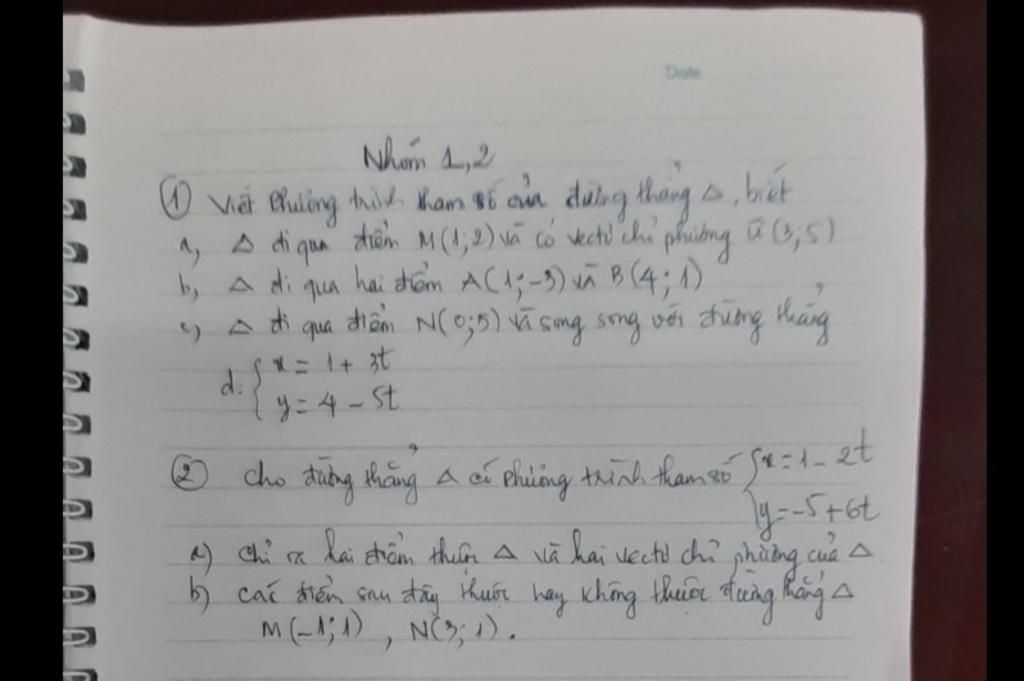 Date
Nhóm 1,2
① Viết Phương trình tham số của đường thẳng Δ, biết
a, Δ đi qua điểm M(1;2) và có vectơ chỉ phương ū(3;5)
b, Δ đi qua hai điểm A(1;-3) và B(4;1)
c, Δ đi qua điểm N(0;5) và song song với đường thẳng
d: { x = 1 + 3t
y = 4 - 5t
② Cho đường thẳng Δ có phương trình tham số { x = 1 - 2t
y = -5 + 6t
a) chỉ ra hai điểm thuộc Δ và hai vectơ chỉ phương của Δ
b) các điểm sau đây thuộc hay không thuộc đường thẳng Δ
M(-1;1) , N(3;1).